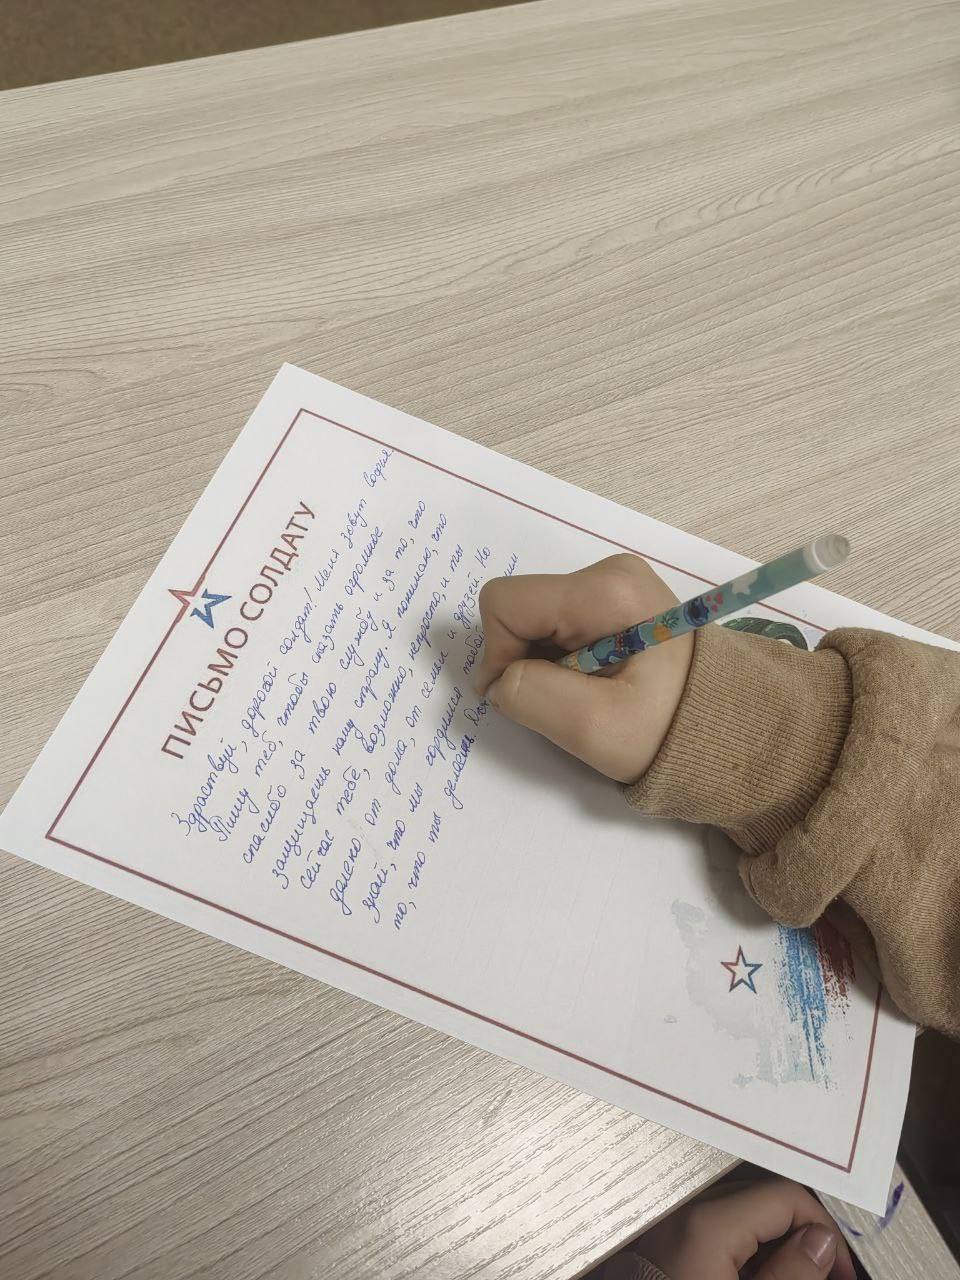 ПИСЬМО СОЛДАТУ
Здраствуй, дорогой солдат! Меня зовут София.
Пишу теб, чтобы сказать огромное
спасибо за твою службу и за то, что
защищаешь нашу страну. Я понимаю, что
сейчас тебе, возможно, непросто, и ты
далеко от дома, от семьи и друзей. Но
знай, что мы гордимся тобой
то, что ты делаешь.